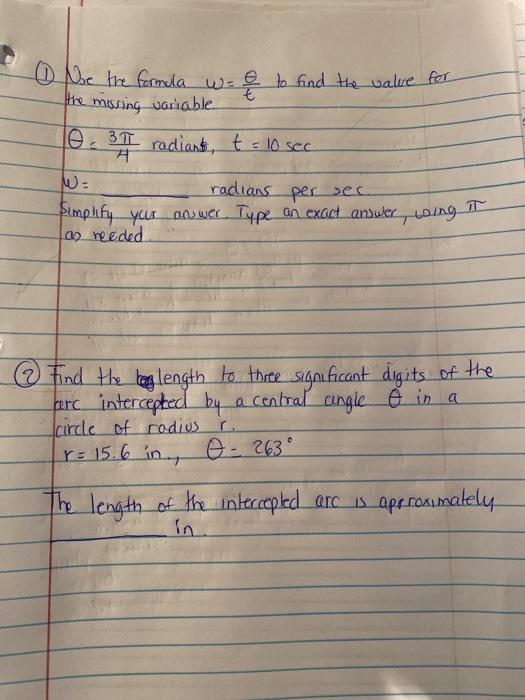 ① Use the formula w = θ/t to find the value for
the missing variable.
θ = 3π/4 radians, t = 10 sec
W = ________ radians per sec
Simplify your answer. Type an exact answer, using π
as needed.
② Find the length to three significant digits of the
arc intercepted by a central angle θ in a
circle of radius r.
r = 15.6 in., θ = 263°
The length of the intercepted arc is approximately
________ in.